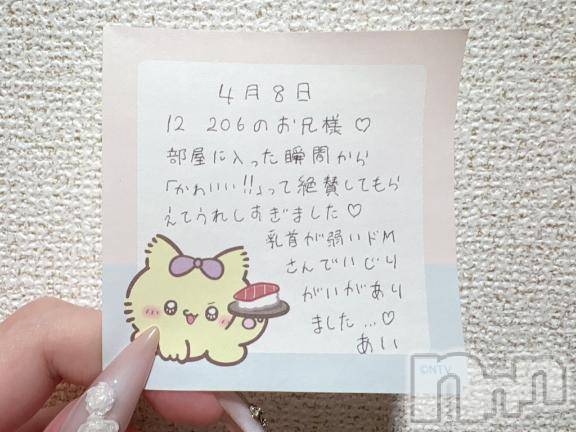 4月8日
12 206のお兄様♡
部屋に入った瞬間から
「かわいい!!」って絶賛してもら
えてうれしすぎました♡
乳首が弱いドM
さんでいじり
がいがあり
ました…♡
あい
©NTV